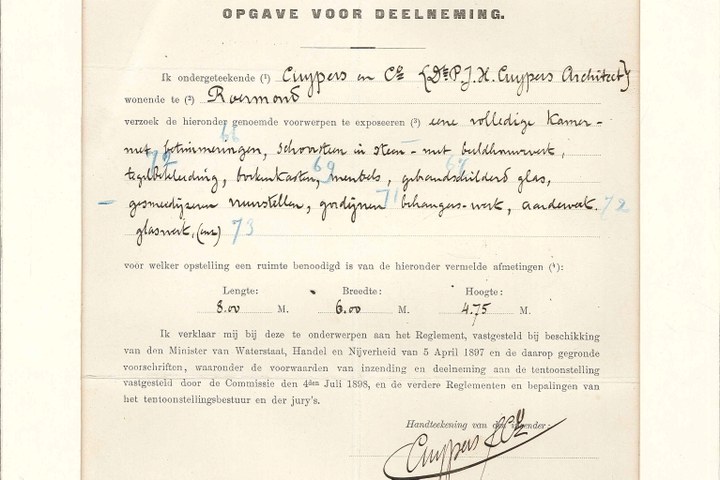 OPGAVE VOOR DEELNEMING.
Ik ondergeteekende (1) Cuypers en Co (Dr P.J.H. Cuypers Architect)
wonende te (2) Roermond
verzoek de hieronder genoemde voorwerpen te exposeeren (3) eene volledige Kamer-
66
met betimmeringen, schoorsteen in steen - met beeldhouwwerk,
72 69 67
tegelbekleeding, boekenkasten, meubels, gebrandschilderd glas,
- gesmeedijzeren vuurstellen, gordijnen 71 behangers-werk, aardewerk. 72
glaswerk, (enz) 73
voor welker opstelling een ruimte benoodigd is van de hieronder vermelde afmetingen (4):
Lengte: Breedte: Hoogte:
8.00 M. 6.00 M. 4.75 M.
Ik verklaar mij bij deze te onderwerpen aan het Reglement, vastgesteld bij beschikking
van den Minister van Waterstaat, Handel en Nijverheid van 5 April 1897 en de daarop gegronde
voorschriften, waaronder de voorwaarden van inzending en deelneming aan de tentoonstelling
vastgesteld door de Commissie den 4den Juli 1898, en de verdere Reglementen en bepalingen van
het tentoonstellingsbestuur en der jury's.
Handteekening van den inzender:
Cuypers & Co